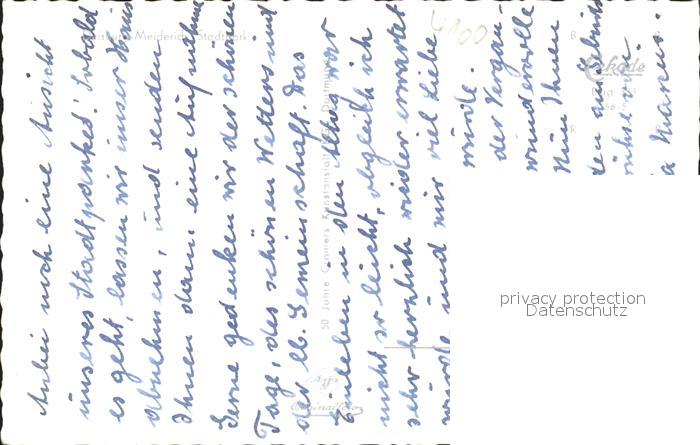 Anbei noch eine Ansicht
unseres Stadtparkes! Sobald
es geht, lassen wir unser Haus
abnehmen, und senden
Ihnen dann eine Aufnahme
Gerne gedenken wir der schönen
Tage, des schönen Wetters und
der lb. Gemeinschaft. Das
Einleben in den Alltag war
nicht so leicht, obgleich ich
sehr herzlich wieder erwartet
wurde und mir viel Liebe
würde.
der Vergan
wundervolle
Nun Ihnen
ten
Duisburg-Meiderich, Stadtpark
50 Jahre Cramers Kunstanstalt Dortmund
Cekade
4100
privacy protection
Datenschutz